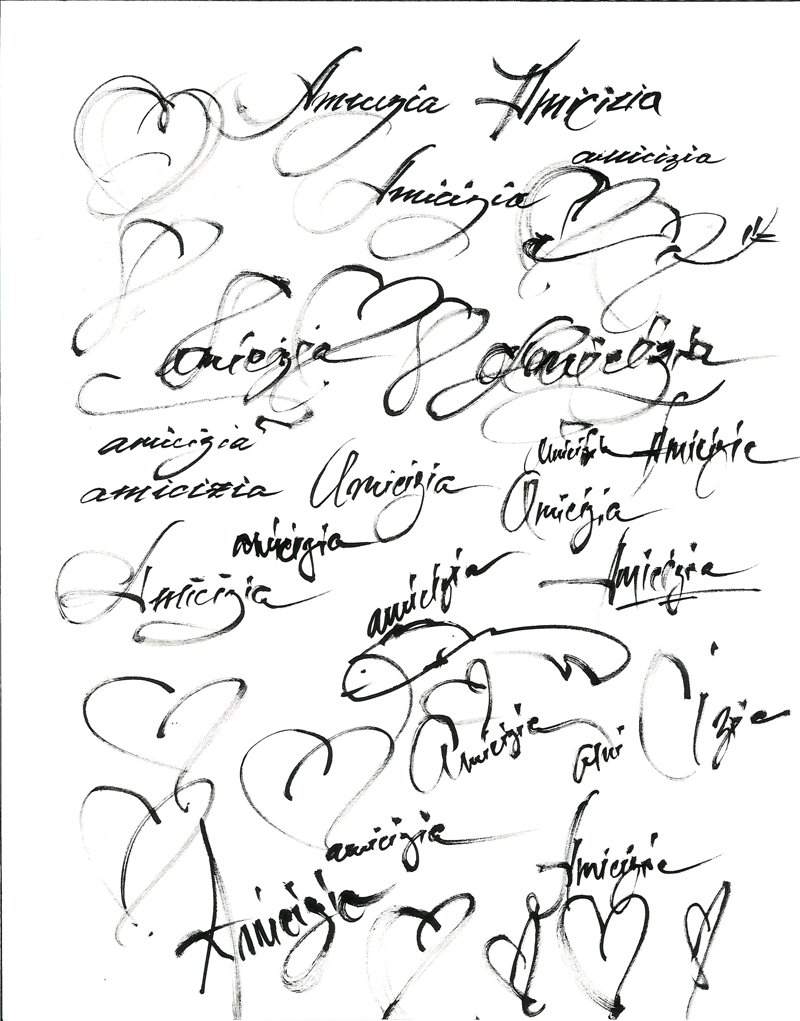 Amicizia Amicizia
amicizia
Amicizia
amicizia amicizia
amicizia
Amicizia
amicizia Amicizia
amicizia Amicizia
Amicizia
amicizia
Amicizia
Amicizia
amicizia
Amicizia
ami Cizia
amicizia
Amicizia
Amicizia